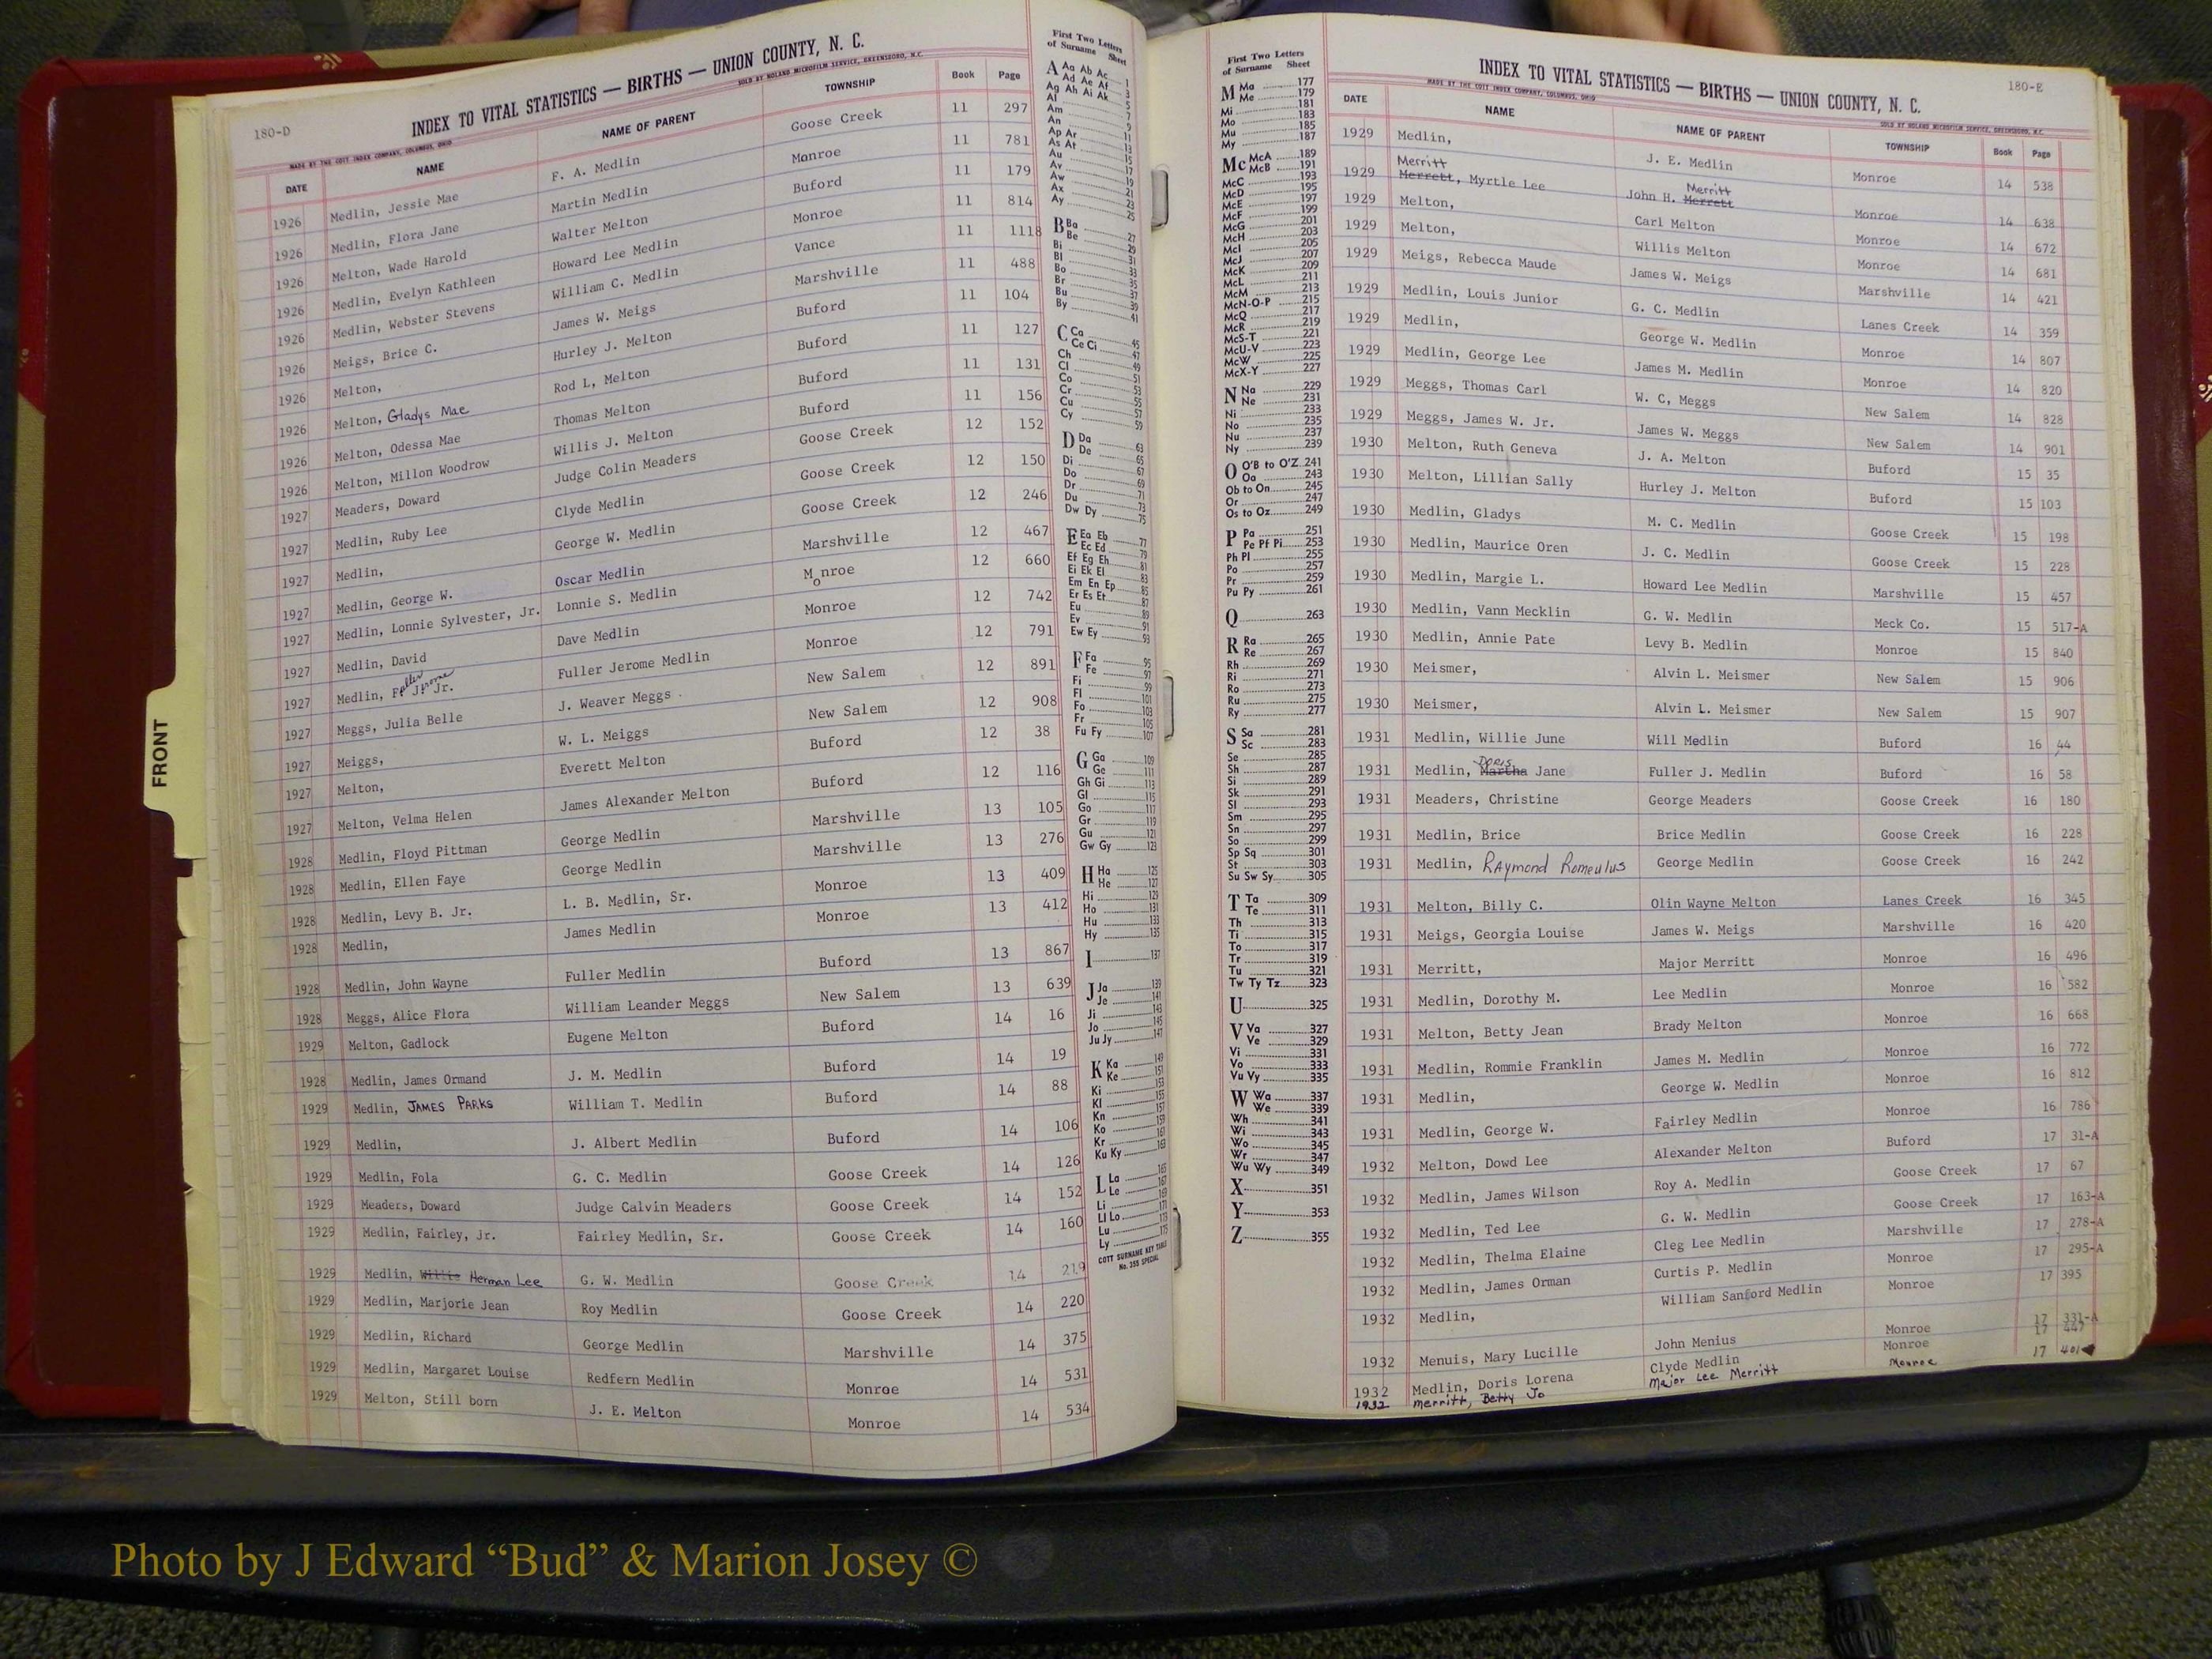 180-D
INDEX TO VITAL STATISTICS — BIRTHS — UNION COUNTY, N. C.
MADE BY THE COTT INDEX COMPANY, COLUMBUS, OHIO SOLD BY NOLAND MICROFILM SERVICE, GREENSBORO, N.C.
DATE NAME NAME OF PARENT TOWNSHIP Book Page
1926 Medlin, Jessie Mae F. A. Medlin Goose Creek 11 297
1926 Medlin, Flora Jane Martin Medlin Monroe 11 781
1926 Melton, Wade Harold Walter Melton Buford 11 179
1926 Medlin, Evelyn Kathleen Howard Lee Medlin Monroe 11 814
1926 Medlin, Webster Stevens William C. Medlin Vance 11 1118
1926 Meigs, Brice C. James W. Meigs Marshville 11 488
1926 Melton, Hurley J. Melton Buford 11 104
1926 Melton, Gladys Mae Rod L, Melton Buford 11 127
1926 Melton, Odessa Mae Thomas Melton Buford 11 131
1926 Melton, Millon Woodrow Willis J. Melton Buford 11 156
1927 Meaders, Doward Judge Colin Meaders Goose Creek 12 152
1927 Medlin, Ruby Lee Clyde Medlin Goose Creek 12 150
1927 Medlin, George W. Medlin Goose Creek 12 246
1927 Medlin, George W. Oscar Medlin Marshville 12 467
1927 Medlin, Lonnie Sylvester, Jr. Lonnie S. Medlin Monroe 12 660
1927 Medlin, David Dave Medlin Monroe 12 742
1927 Medlin, Jerome Jr. Fuller Jerome Medlin Monroe 12 791
1927 Meggs, Julia Belle J. Weaver Meggs New Salem 12 891
1927 Meiggs, W. L. Meiggs New Salem 12 908
1927 Melton, Everett Melton Buford 12 38
1927 Melton, Velma Helen James Alexander Melton Buford 12 116
1928 Medlin, Floyd Pittman George Medlin Marshville 13 105
1928 Medlin, Ellen Faye George Medlin Marshville 13 276
1928 Medlin, Levy B. Jr. L. B. Medlin, Sr. Monroe 13 409
1928 Medlin, James Medlin Monroe 13 412
1928 Medlin, John Wayne Fuller Medlin Buford 13 867
1928 Meggs, Alice Flora William Leander Meggs New Salem 13 639
1929 Melton, Gadlock Eugene Melton Buford 14 16
1928 Medlin, James Ormand J. M. Medlin Buford 14 19
1929 Medlin, JAMES PARKS William T. Medlin Buford 14 88
1929 Medlin, J. Albert Medlin Buford 14 106
1929 Medlin, Fola G. C. Medlin Goose Creek 14 126
1929 Meaders, Doward Judge Calvin Meaders Goose Creek 14 152
1929 Medlin, Fairley, Jr. Fairley Medlin, Sr. Goose Creek 14 160
1929 Medlin, Willie Herman Lee G. W. Medlin Goose Creek 14 219
1929 Medlin, Marjorie Jean Roy Medlin Goose Creek 14 220
1929 Medlin, Richard George Medlin Marshville 14 375
1929 Medlin, Margaret Louise Redfern Medlin Monroe 14 531
1929 Melton, Still born J. E. Melton Monroe 14 534
First Two Letters
of Surname Sheet
A Aa Ab Ac 1
Ad Ae Af 3
Ag Ah Ai Ak 5
Al 7
Am 9
An 11
Ap Ar 13
As At 15
Au 17
Av 19
Aw 21
Ax 23
Ay 25
B Ba 27
Be 29
Bi 31
Bl 33
Bo 35
Br 37
Bu 39
By 41
C Ca 45
Ce Ci 47
Ch 49
Cl 51
Co 53
Cr 55
Cu 57
Cy 59
D Da 63
De 65
Di 67
Do 69
Dr 71
Du 73
Dw Dy 75
E Ea Eb 77
Ec Ed 79
Ef Eg Eh 81
Ei Ek El 83
Em En Ep 85
Er Es Et 87
Eu 89
Ev 91
Ew Ey 93
F Fa 95
Fe 97
Fi 99
Fl 101
Fo 103
Fr 105
Fu Fy 107
G Ga 109
Ge 111
Gh Gi 113
Gl 115
Go 117
Gr 119
Gu 121
Gw Gy 123
H Ha 125
He 127
Hi 129
Ho 131
Hu 133
Hy 135
I 137
J Ja 139
Je 141
Ji 143
Jo 145
Ju Jy 147
K Ka 149
Ke 151
Ki 153
Kl 155
Kn 157
Ko 159
Kr 161
Ku Ky 163
L La 165
Le 167
Li 169
Ll Lo 171
Lu 173
Ly 175
COTT SURNAME KEY TABLE
No. 355 SPECIAL
First Two Letters
of Surname Sheet
M Ma 177
Me 179
Mi 181
Mo 183
Mu 185
My 187
Mc McA 189
McB 191
McC 193
McD 195
McE 197
McF 199
McG 201
McH 203
McI 205
McJ 207
McK 209
McL 211
McM 213
McN-O-P 215
McQ 217
McR 219
McS-T 221
McU-V 223
McW 225
McX-Y 227
N Na 229
Ne 231
Ni 233
No 235
Nu 237
Ny 239
O O'B to O'Z 241
Oa 243
Ob to On 245
Or 247
Os to Oz 249
P Pa 251
Pe Pf Pi 253
Ph Pl 255
Po 257
Pr 259
Pu Py 261
Q 263
R Ra 265
Re 267
Rh 269
Ri 271
Ro 273
Ru 275
Ry 277
S Sa 281
Sc 283
Se 285
Sh 287
Si 289
Sk 291
Sl 293
Sm 295
Sn 297
So 299
Sp Sq 301
St 303
Su Sw Sy 305
T Ta 309
Te 311
Th 313
Ti 315
To 317
Tr 319
Tu 321
Tw Ty Tz 323
U 325
V Va 327
Ve 329
Vi 331
Vo 333
Vu Vy 335
W Wa 337
We 339
Wh 341
Wi 343
Wo 345
Wr 347
Wu Wy 349
X 351
Y 353
Z 355
INDEX TO VITAL STATISTICS — BIRTHS — UNION COUNTY, N. C.
180-E
MADE BY THE COTT INDEX COMPANY, COLUMBUS, OHIO SOLD BY NOLAND MICROFILM SERVICE, GREENSBORO, N.C.
DATE NAME NAME OF PARENT TOWNSHIP Book Page
1929 Medlin, J. E. Medlin Monroe 14 538
Merritt Merritt
1929 Merrett, Myrtle Lee John H. Merrett Monroe 14 638
1929 Melton, Carl Melton Monroe 14 672
1929 Melton, Willis Melton Monroe 14 681
1929 Meigs, Rebecca Maude James W. Meigs Marshville 14 421
1929 Medlin, Louis Junior G. C. Medlin Lanes Creek 14 359
1929 Medlin, George W. Medlin Monroe 14 807
1929 Medlin, George Lee James M. Medlin Monroe 14 820
1929 Meggs, Thomas Carl W. C, Meggs New Salem 14 828
1929 Meggs, James W. Jr. James W. Meggs New Salem 14 901
1930 Melton, Ruth Geneva J. A. Melton Buford 15 35
1930 Melton, Lillian Sally Hurley J. Melton Buford 15 103
1930 Medlin, Gladys M. C. Medlin Goose Creek 15 198
1930 Medlin, Maurice Oren J. C. Medlin Goose Creek 15 228
1930 Medlin, Margie L. Howard Lee Medlin Marshville 15 457
1930 Medlin, Vann Mecklin G. W. Medlin Meck Co. 15 517-A
1930 Medlin, Annie Pate Levy B. Medlin Monroe 15 840
1930 Meismer, Alvin L. Meismer New Salem 15 906
1930 Meismer, Alvin L. Meismer New Salem 15 907
1931 Medlin, Willie June Will Medlin Buford 16 44
Doris
1931 Medlin, Martha Jane Fuller J. Medlin Buford 16 58
1931 Meaders, Christine George Meaders Goose Creek 16 180
1931 Medlin, Brice Brice Medlin Goose Creek 16 228
1931 Medlin, RAymond Romeulus George Medlin Goose Creek 16 242
1931 Melton, Billy C. Olin Wayne Melton Lanes Creek 16 345
1931 Meigs, Georgia Louise James W. Meigs Marshville 16 420
1931 Merritt, Major Merritt Monroe 16 496
1931 Medlin, Dorothy M. Lee Medlin Monroe 16 582
1931 Melton, Betty Jean Brady Melton Monroe 16 668
1931 Medlin, Rommie Franklin James M. Medlin Monroe 16 772
1931 Medlin, George W. Medlin Monroe 16 812
1931 Medlin, George W. Fairley Medlin Monroe 16 786
1932 Melton, Dowd Lee Alexander Melton Buford 17 31-A
1932 Medlin, James Wilson Roy A. Medlin Goose Creek 17 67
1932 Medlin, Ted Lee G. W. Medlin Goose Creek 17 163-A
1932 Medlin, Thelma Elaine Cleg Lee Medlin Marshville 17 278-A
1932 Medlin, James Orman Curtis P. Medlin Monroe 17 295-A
1932 Medlin, William Sanford Medlin Monroe 17 395
1932 Menuis, Mary Lucille John Menius Monroe 17 331-A
1932 Medlin, Doris Lorena Clyde Medlin Monroe 17 447
1932 Merritt, Betty Jo Major Lee Merritt Monroe 17 401
FRONT
Photo by J Edward “Bud” & Marion Josey ©